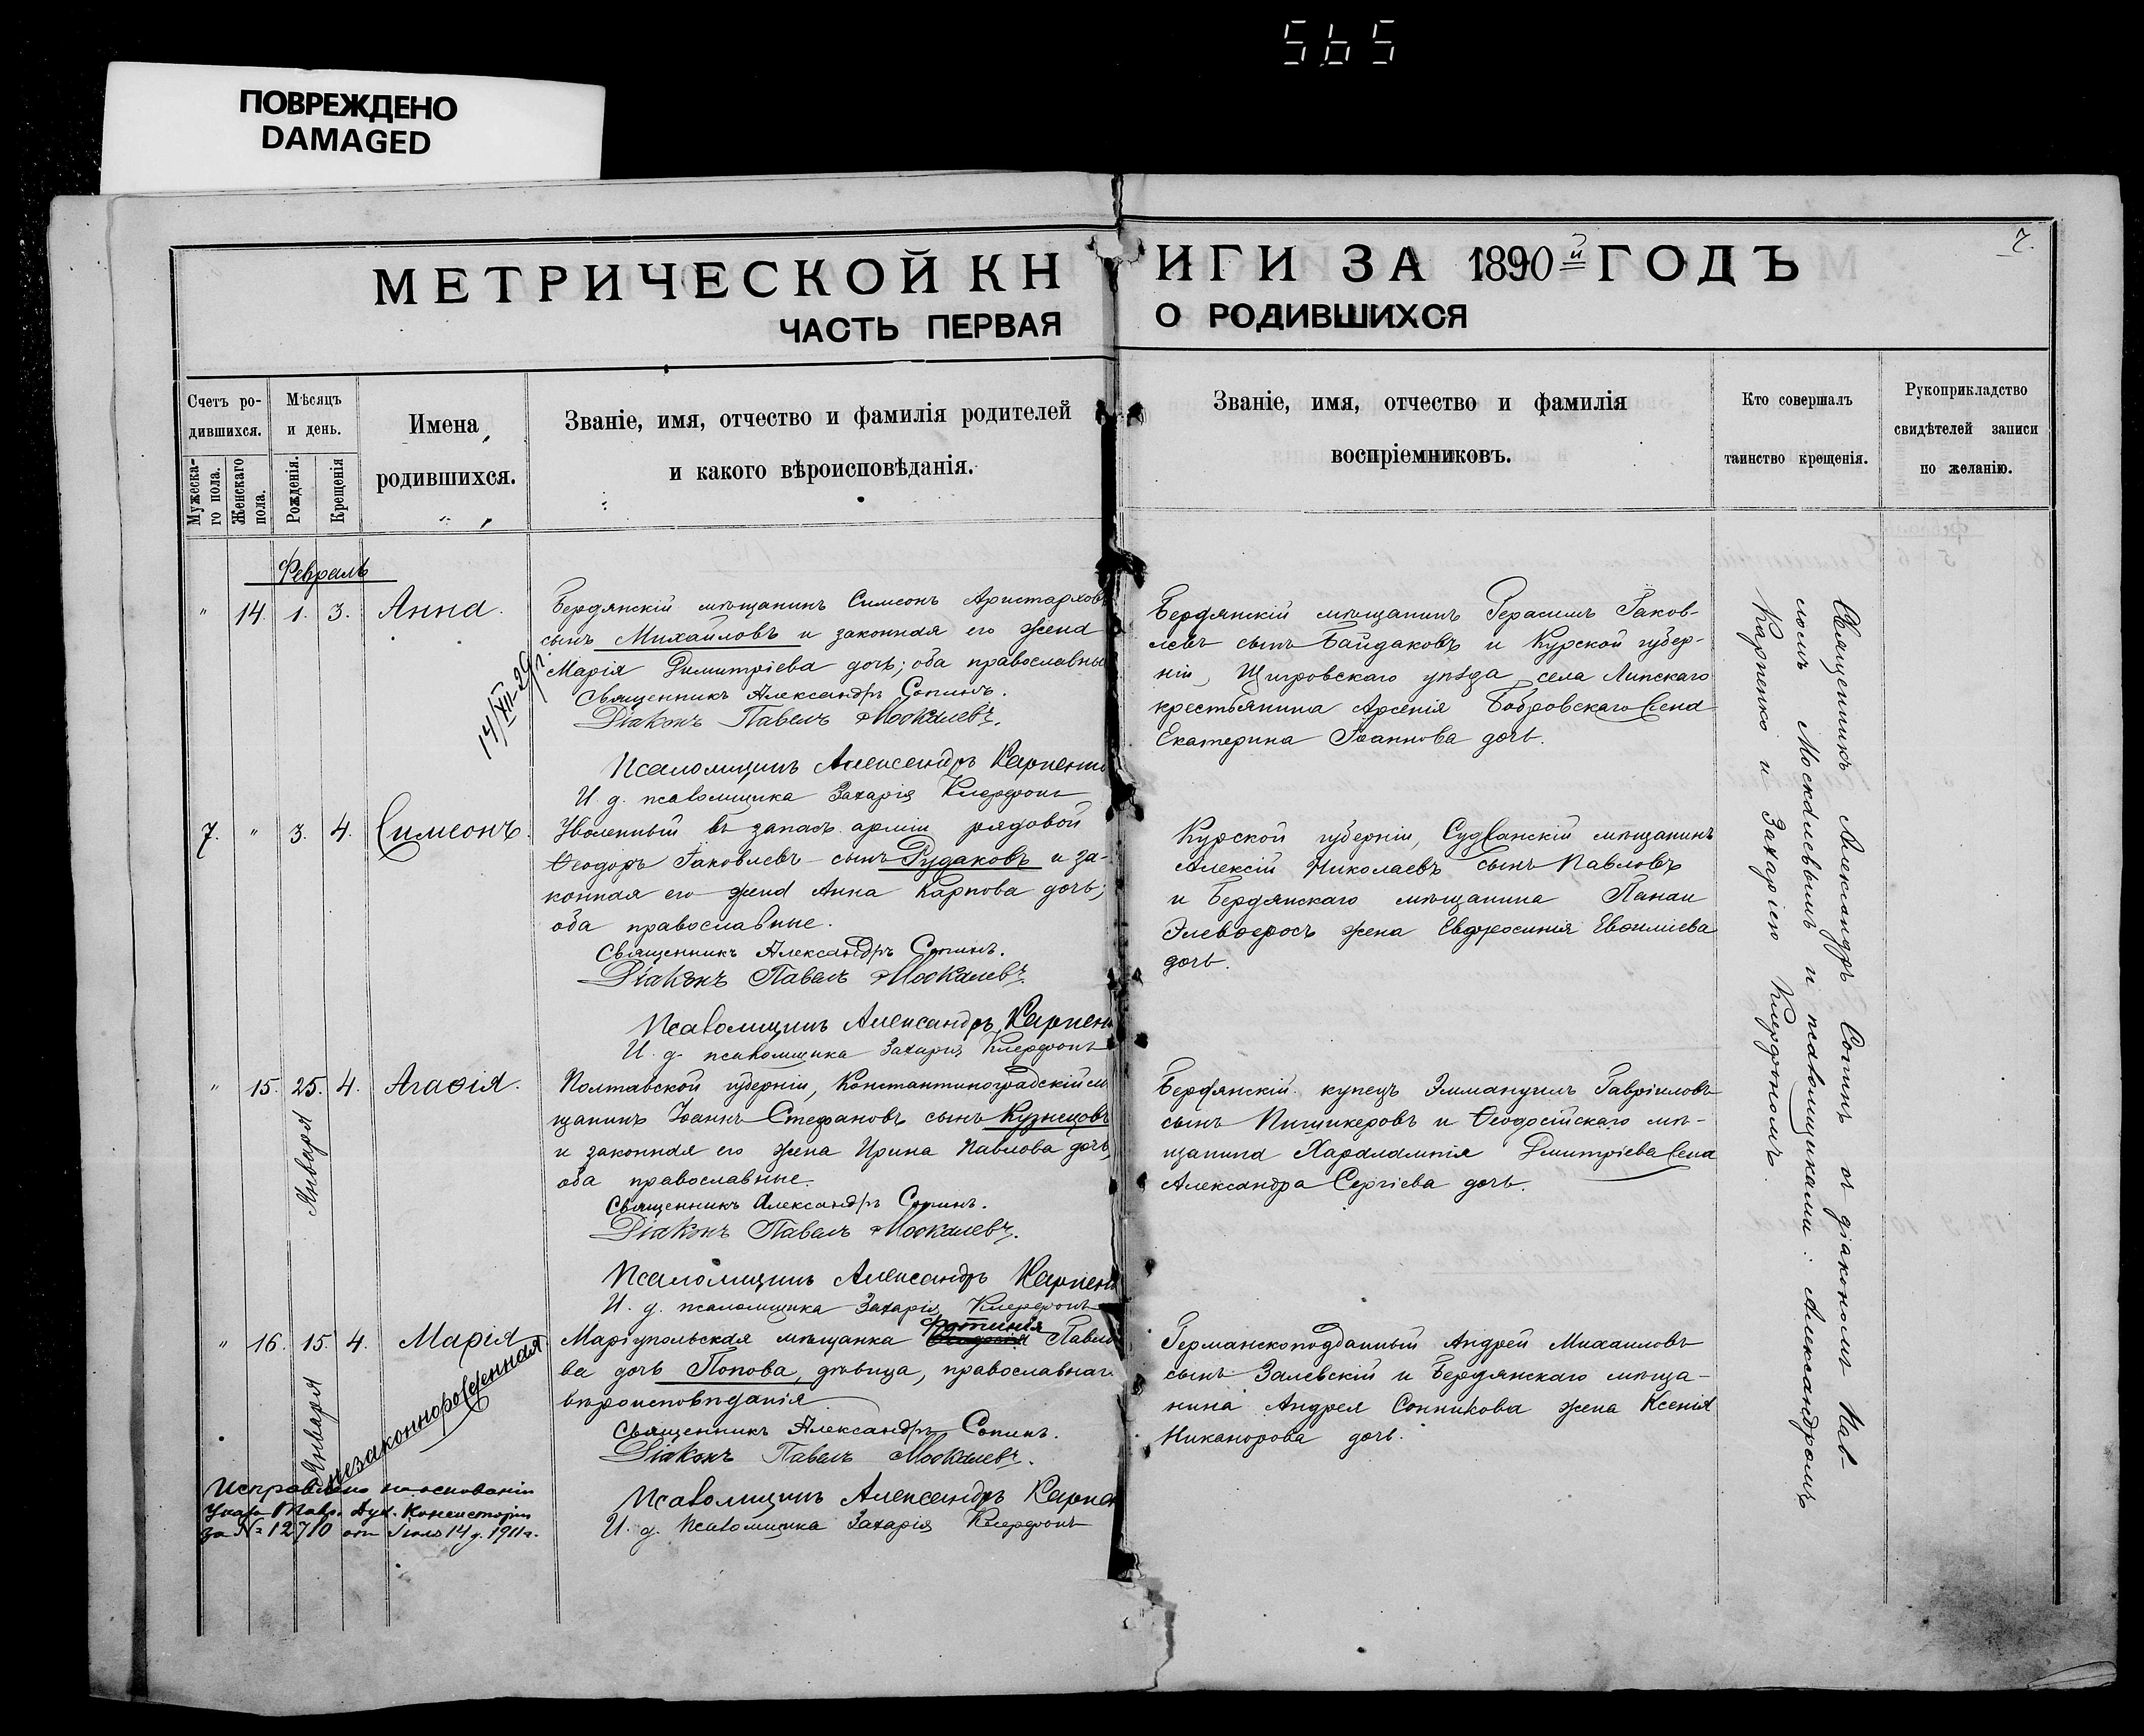 565
ПОВРЕЖДЕНО
DAMAGED
7.
МЕТРИЧЕСКОЙ КНИГИ ЗА 1890й ГОДЪ
ЧАСТЬ ПЕРВАЯ О РОДИВШИХСЯ
Счетъ ро-
дившихся.
Мужеска-
го пола.
Женскаго
пола.
Мѣсяцъ
и день.
Рожденія.
Крещенія
Имена
родившихся.
Званіе, имя, отчество и фамилія родителей
и какого вѣроисповѣданія.
Званіе, имя, отчество и фамилія
воспріемниковъ.
Кто совершалъ
таинство крещенія.
Рукоприкладство
свидѣтелей записи
по желанію.
Февраль
" 14. 1. 3. Анна.
Бердянскій мѣщанинъ Симеонъ Аристархов
сынъ Михайловъ и законная его жена
Марія Димитріева дочь; оба православны
Священникъ Александръ Сопинъ.
Діаконъ Павелъ Москалевъ.
Псаломщикъ Александръ Карпенко
И. д. псаломщика Захарія Клерфонъ
14/XII-29 г
Бердянскій мѣщанинъ Герасимъ Іаков-
левъ сынъ Байдаковъ и Курской губер-
ніи, Щигровскаго уѣзда села Липскаго
крестьянина Арсенія Бобровскаго жена
Екатерина Іоаннова дочь.
7. " 3. 4. Симеонъ.
Уволенный въ запасъ арміи рядовой
Ѳеодоръ Іаковлевъ сынъ Рудаковъ и за-
конная его жена Анна Карпова дочь;
оба православные.
Священникъ Александръ Сопинъ.
Діаконъ Павелъ Москалевъ
Псаломщикъ Александръ Карпен
И. д. псаломщика Захарія Клерфонъ
Курской губерніи, Суджанскій мѣщанинъ
Алексій Николаевъ сынъ Павловъ
и Бердянскаго мѣщанина Панаи
Элевѳеросъ жена Евфросинія Евѳиміева
дочь.
" 15. 25. 4. Агаѳія.
Января
Полтавской губерніи, Константиноградскій мѣ
щанинъ Іоаннъ Стефановъ сынъ Кузнецовъ
и законная его жена Ирина Павлова дочь,
оба православные.
Священникъ Александръ Сопинъ.
Діаконъ Павелъ Москалевъ.
Псаломщикъ Александръ Карпен
И. д. псаломщика Захарія Клерфонъ
Бердянскій купецъ Эммануилъ Гавріиловъ
сынъ Пишикеровъ и Ѳеодосійскаго мѣ-
щанина Харалампія Дмитріева жена
Александра Сергіева дочь.
" 16. 15. 4. Марія
Января
незаконнорожденная
Фотинія
Маріупольская мѣщанка Павло
ва дочь Попова, дѣвица, православнаг
вѣроисповѣданія
Священникъ Александръ Сопинъ.
Діаконъ Павелъ Москалевъ.
Псаломщикъ Александръ Карпен
И. д. псаломщика Захарія Клерфонъ
Исправлено на основаніи
Указа Тавр. Дух. Консисторіи
за № 12710 отъ Іюля 14 д. 1911 г.
Германскоподданный Андрей Михаиловъ
сынъ Залевскій и Бердянскаго мѣща-
нина Андрея Сонникова жена Ксенія
Никанорова дочь.
Священникъ Александръ Сопинъ съ діакономъ Пав-
ломъ Москалевымъ и псаломщиками: Александромъ
Карпенко и Захаріею Клерфономъ.